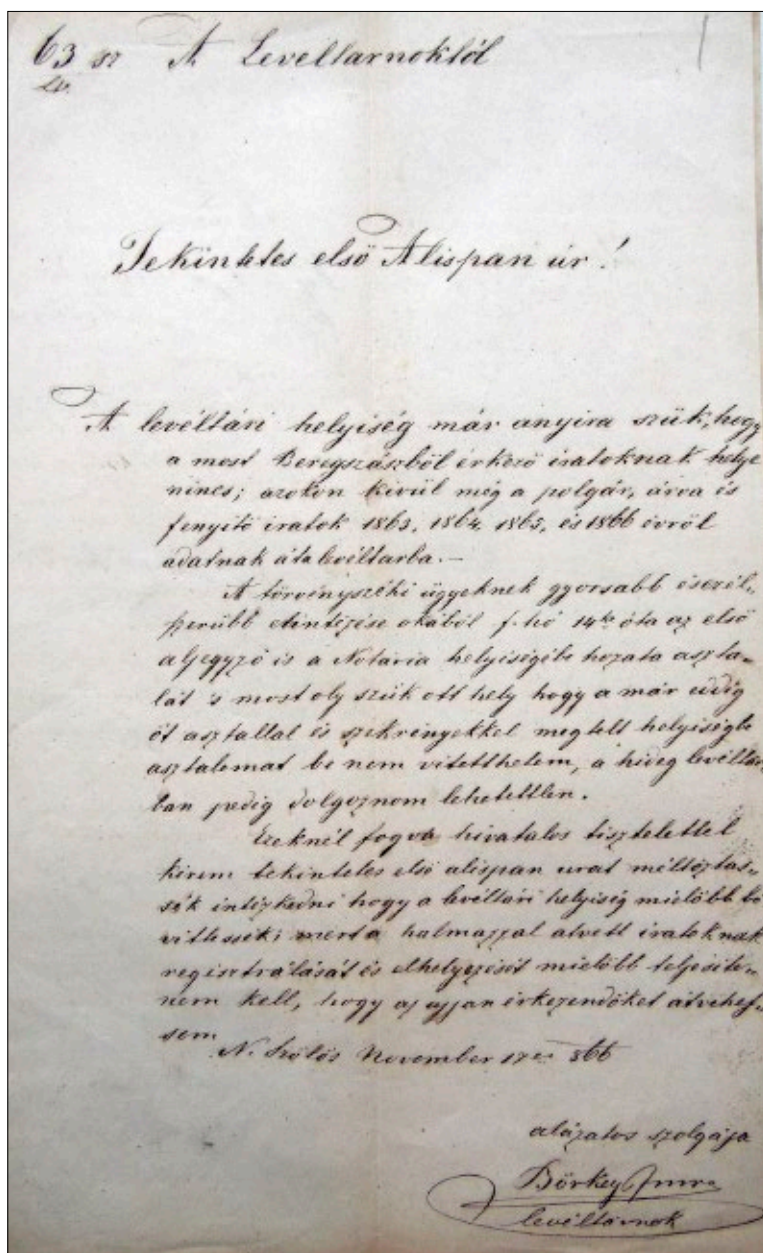 63 sz A Levéltarnoktól
Lv.
Tekintetes első Alispan úr!
A levéltári helyiség már anyira szük, hogy
a most Beregszászból érkező iratoknak helye
nincs; azokon kivül még a polgár, árva és
fenyitő iratok 1863, 1864, 1865, és 1866 évről
adatnak át a levéltarba.–
A törvényszéki ügyeknek gyorsabb és czél-
szerübb elintézése okából f. hó 14ke óta az első
aljegyző is a Notaria helyiségébe hozata aszta-
lát 's most oly szük ott hely hogy a már eddig
öt asztallal és szekrényekkel megtelt helyiségbe
asztalomat be nem vitetthetem, a hideg levéltár-
ban pedig dolgoznom lehetettlen.
Ezeknél fogva hivatalos tisztelettel
kérem tekintetes első alispan urat méltóztas-
sék intézkedni hogy a levéltári helyiség mielöbb bő
vittessék; mert a halmazzal atvett iratoknak
registrálását és elhelyezését mielöbb teljesite-
nem kell, hogy az ujjan érkezendőket átvehes-
sem
N. Szőlős November 17én 866
alázatos szolgája
Börkey Imre
levéltárnok